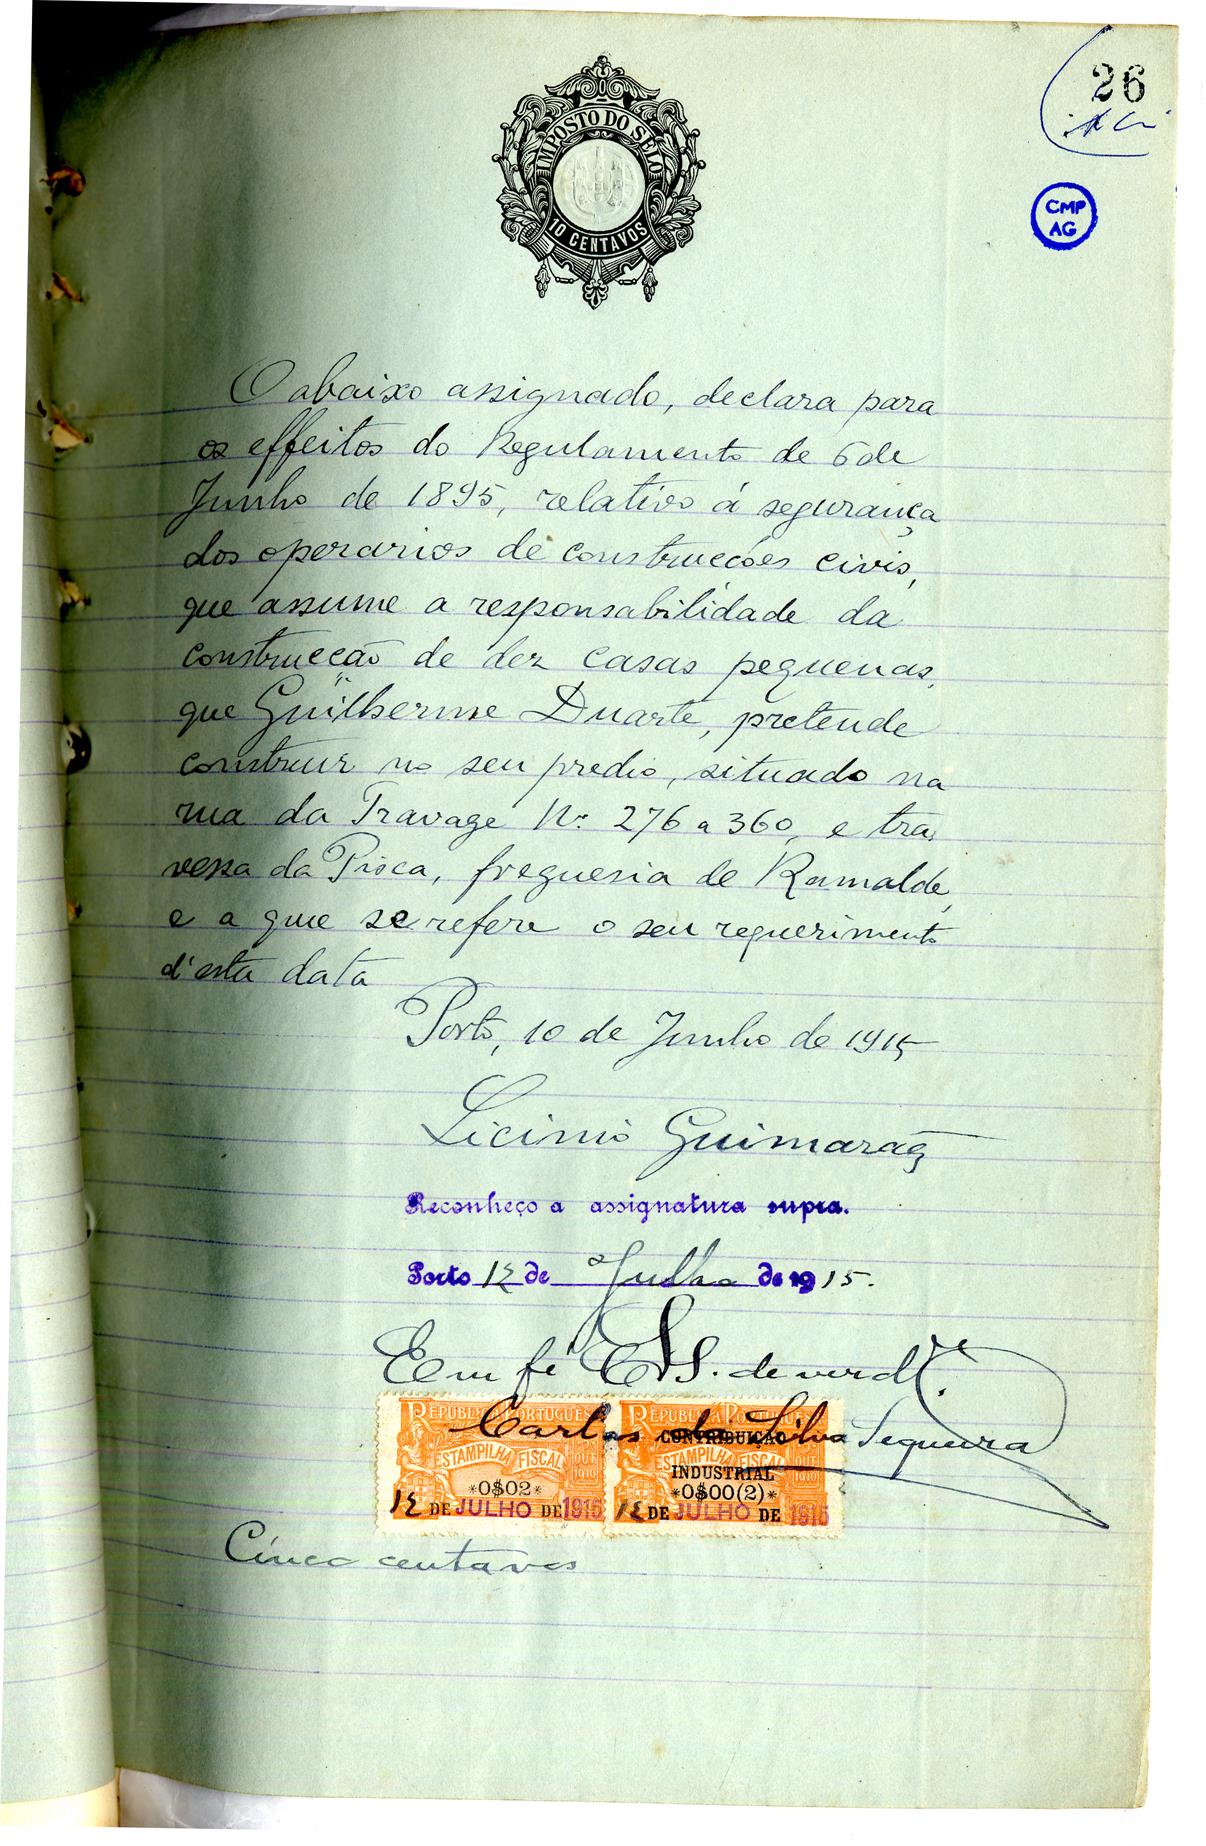 26
IMPOSTO DO SELO
10 CENTAVOS
CMP
AG
O abaixo assignado, declara para
os effeitos do Regulamento de 6 de
Junho de 1895, relativo á segurança
dos operarios de construcções civis,
que assume a responsabilidade da
construcção de dez casas pequenas,
que Guilherme Duarte, pretende
construir no seu predio, situado na
rua da Travage Nº 276 a 360, e tra
vessa da Prisca, freguesia de Ramalde,
e a que se refere o seu requerimento
d'esta data
Porto, 10 de Junho de 1915
Licinio Guimarães
Reconheço a assignatura supra.
Porto 12 de Julho de 1915.
Em fé de verdᵉ.
Carlos da Silva Sequeira
REPUBLICA PORTUGUESA REPUBLICA PORTUGUESA
CONTRIBUIÇÃO
ESTAMPILHA FISCAL ESTAMPILHA FISCAL
5 OUT 1910 5 OUT 1910
INDUSTRIAL
*0$02* *0$00(2)*
12 DE JULHO DE 1915 12 DE JULHO DE 1915
Cinco centavos